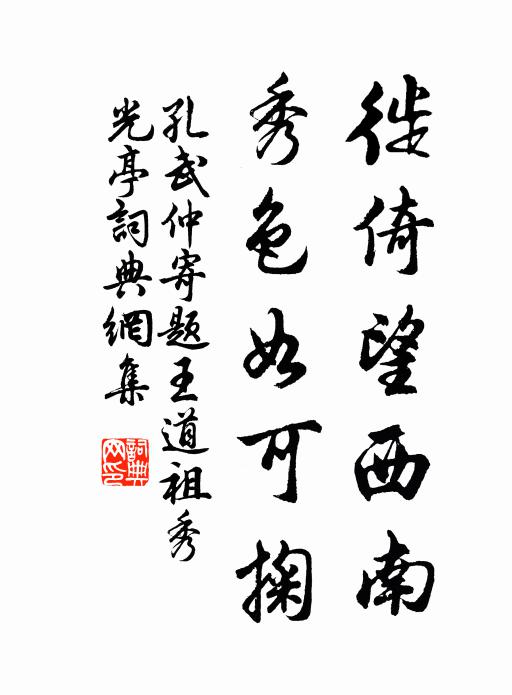 徙倚望西南
秀色如可掬
孔武仲寄題王道祖秀
光亭詞典網集
詞典网印